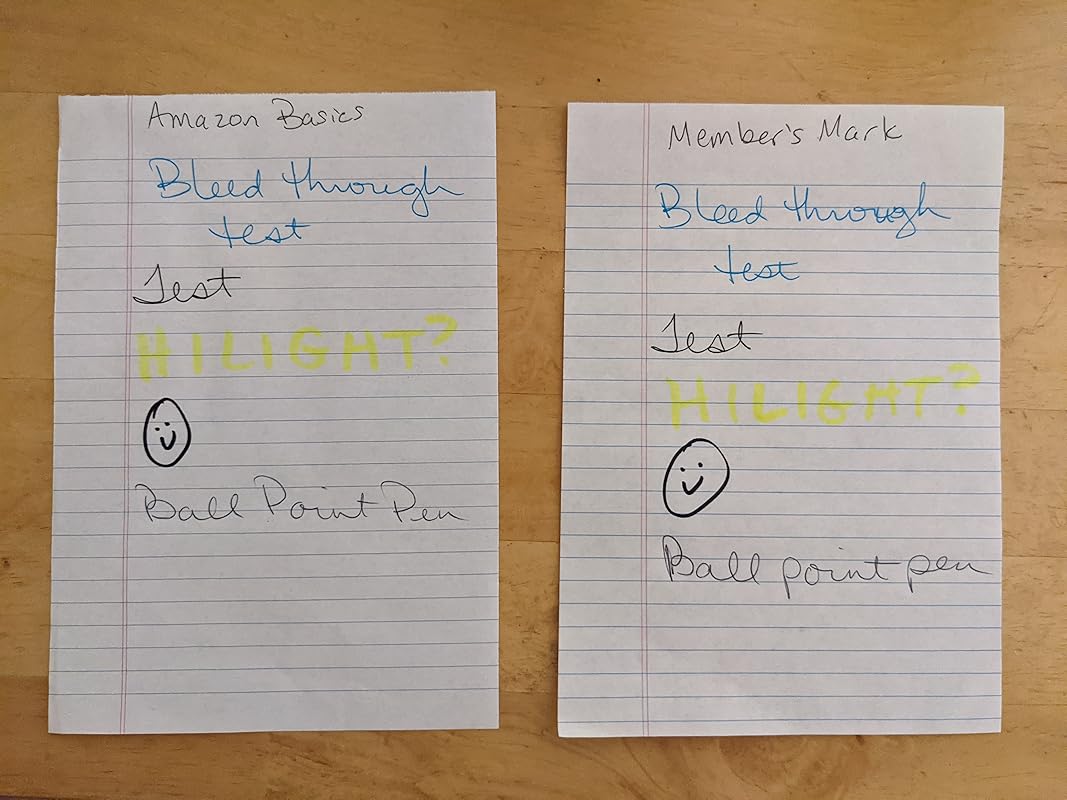 Amazon Basics
Bleed through
test
Test
HILIGHT?
Ball Point Pen
Member's Mark
Bleed through
test
Test
HILIGHT?
Ball point pen